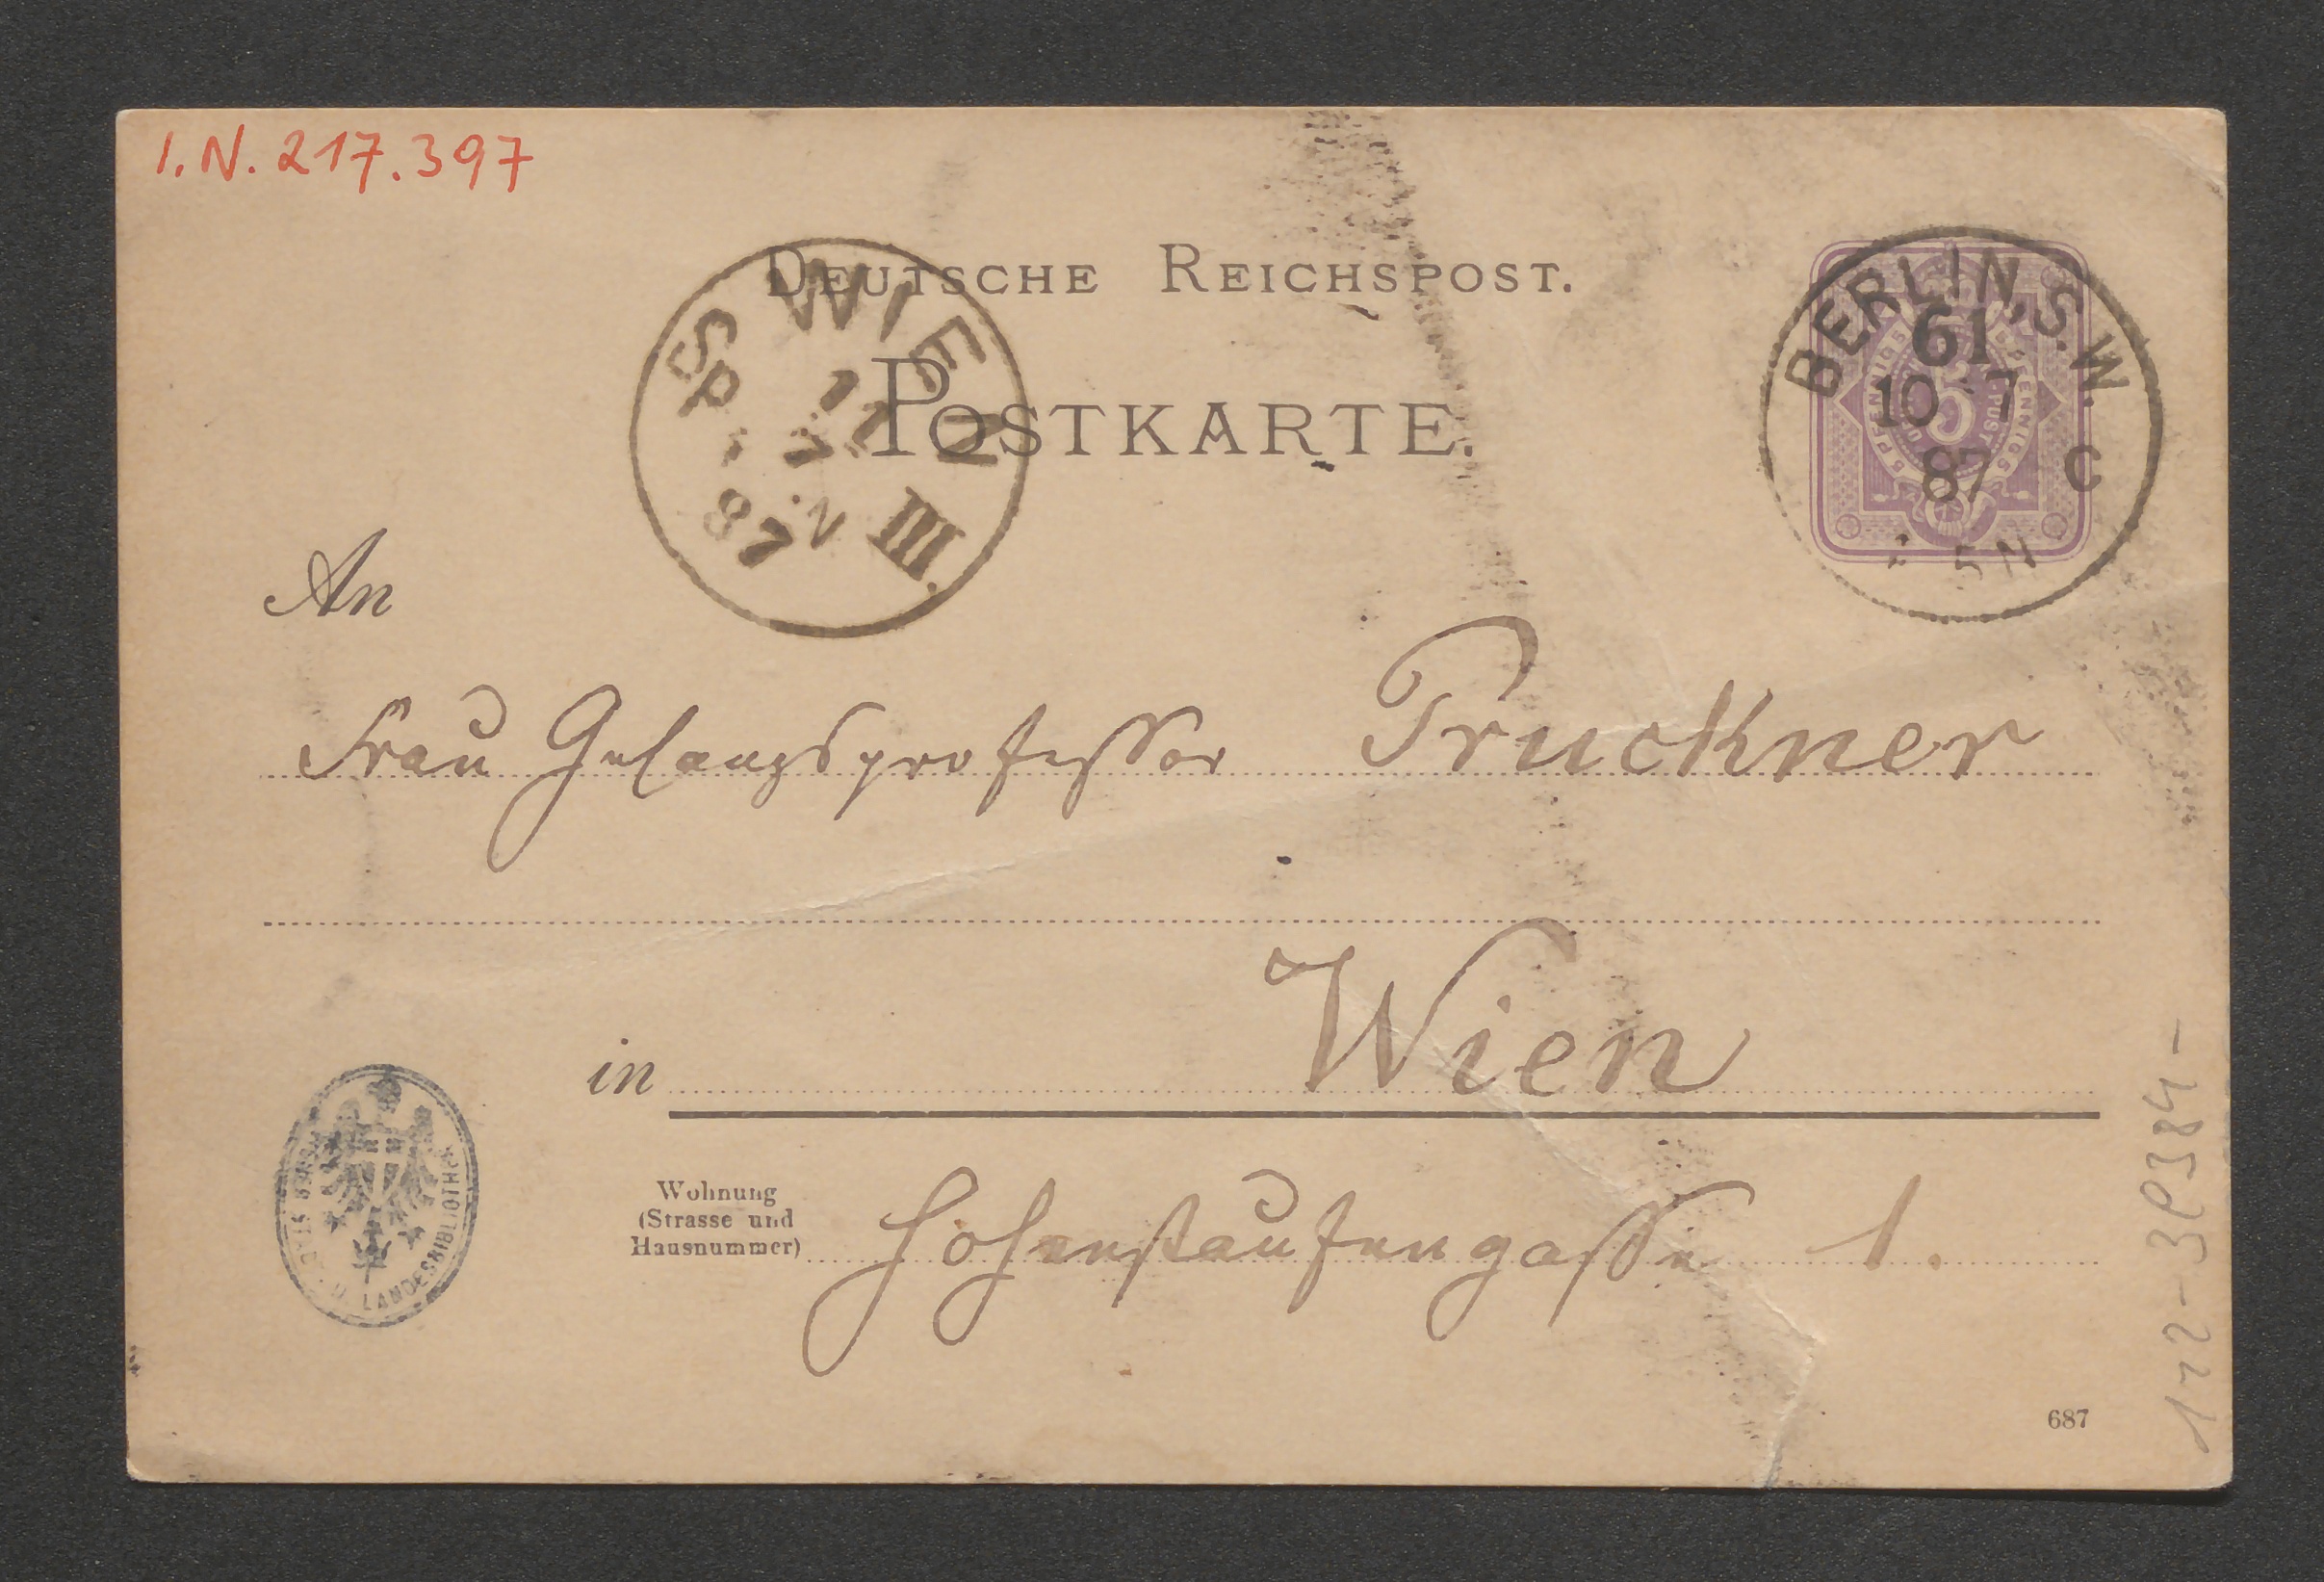 I.N. 217.397
DEUTSCHE REICHSPOST.
POSTKARTE.
WIEN III.
87
BERLIN, S.W.
61
10 7
87
C
5 N
5
An
Frau Gesangsprofessor Pruckner
in Wien
Wohnung
(Strasse und
Hausnummer)
Hohenstaufengasse 1.
U. LANDESBIBLIOTHEK
687